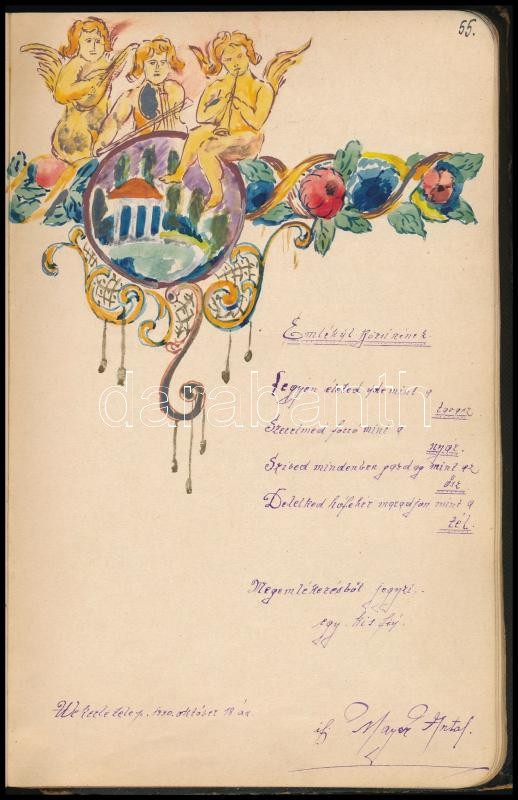 55.
Emlékül Rózsinének
Legyen életed üde mint a
tavasz.
Szerelmed forró mint a
nyár.
Szíved mindenben gazdag mint az
ősz
De lelked hófehér maradjon mint a
tél.
darabanth
Megemlékezésből jegyzi..
egy. kis
Wekerletelep. 1930. október 18.án.
ifj. Mayer Antal.